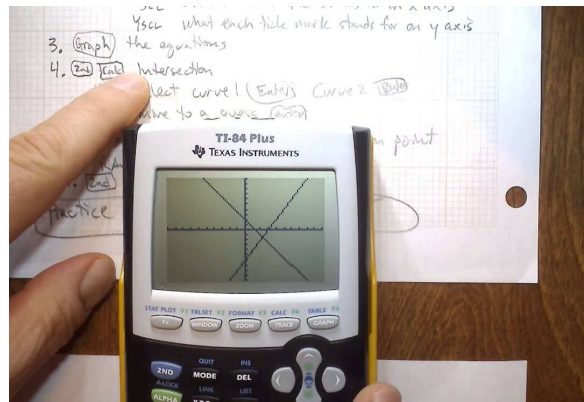 Yscl what each tick mark stands for on y axis
3. Graph the equations
4. 2nd Calc Intersection
curve 1 Enter Curve 2
to a guess
point
2nd
Practice
TI-84 Plus
TEXAS INSTRUMENTS
STAT PLOT F1 TBLSET F2 FORMAT F3 CALC F4 TABLE F5
Y= WINDOW ZOOM TRACE GRAPH
QUIT INS
2ND MODE DEL
A-LOCK LINK LIST
ALPHA